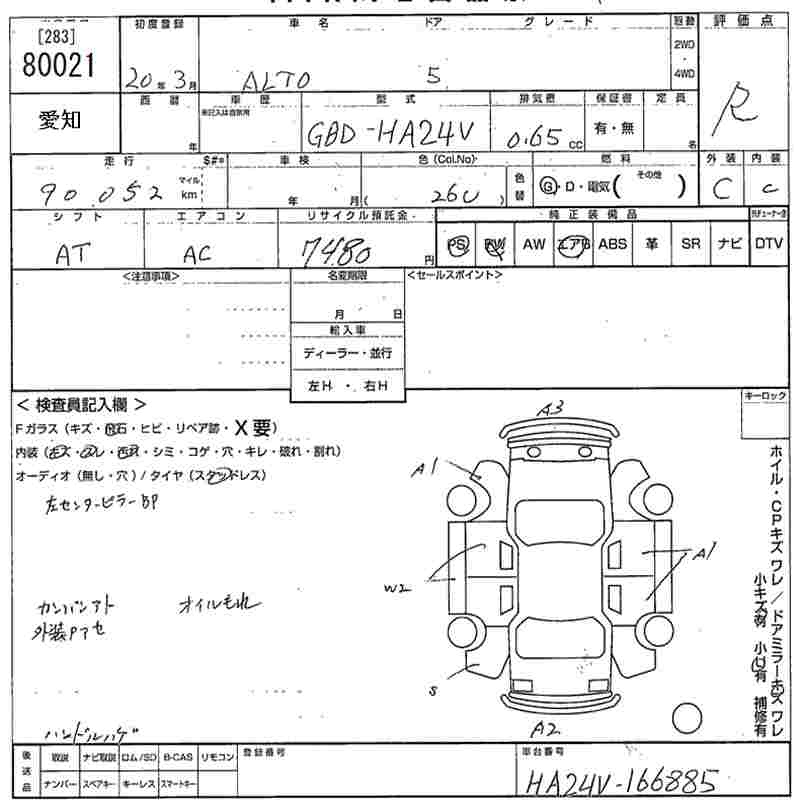 [283]
80021
初度登録
車名
ドア
グレード
駆動
評価点
20年3月
ALTO
5
2WD
・
4WD
R
愛知
西暦
年
車歴
型式
GBD-HA24V
排気量
0.65 CC
保証書
有・無
定員
名
走行
$#*
車検
色(Col.No)
燃料
外装
内装
90.052
マイル
km
年
月(
26U
)
色替
G・D・電気(その他)
C
C
シフト
エアコン
リサイクル預託金
純正装備品
AT
AC
7480円
PS
PW
AW
エアB
ABS
革
SR
ナビ
DTV
<注意事項>
名変期限
<セールスポイント>
月
日
輸入車
ディーラー・並行
左H・右H
キーロック
<検査員記入欄>
Fガラス(キズ・飛石・ヒビ・リペア跡・X要)
内装(キズ・スレ・汚れ・シミ・コゲ・穴・キレ・破れ・割れ)
オーディオ(無し・穴)/タイヤ(スタッドレス)
左センターピラーBP
カンバンアト
オイルもれ
外装色アセ
ハンドルハゲ
A3
A1
A1
W2
S
A2
ホイル・CPキズワレ/ドアミラーキズワレ
小キズ有 小凹有 補修有
後送品
取説
ナビ取説
ロム/SD
B-CAS
リモコン
ナンバー
スペアキー
キーレス
スマートキー
登録番号
車台番号
HA24V-166885